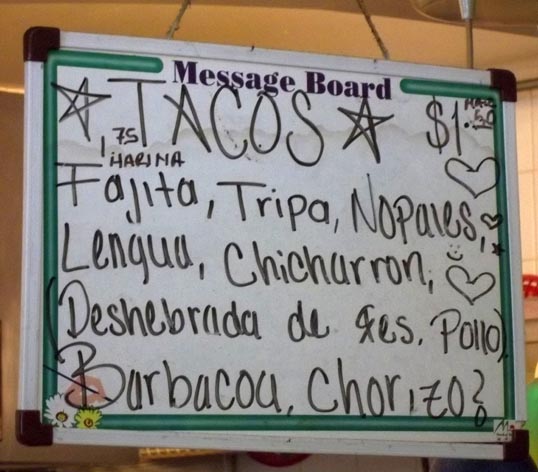 Message Board
TACOS $1.50
1.75 HARINA
Fajita, Tripa, Nopales,
Lengua, Chicharron,
(Deshebrada de Res. Pollo)
Barbacoa, Chorizo